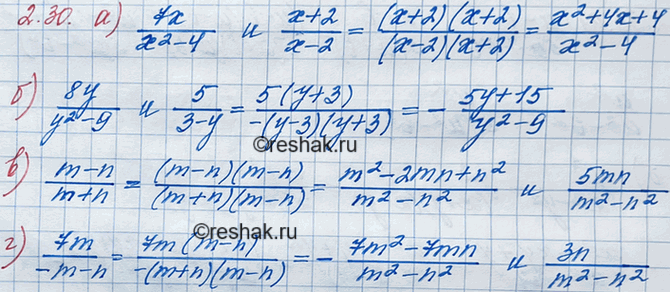 2.30. а) 7x/(x²-4) и (x+2)/(x-2) = ((x+2)(x+2))/((x-2)(x+2)) = (x²+4x+4)/(x²-4)
б) 8y/(y²-9) и 5/(3-y) = (5(y+3))/(-(y-3)(y+3)) = - (5y+15)/(y²-9)
©reshak.ru
в) (m-n)/(m+n) = ((m-n)(m-n))/((m+n)(m-n)) = (m²-2mn+n²)/(m²-n²) и 5mn/(m²-n²)
©reshak.ru
г) 7m/(-m-n) = (7m(m-n))/(-(m+n)(m-n)) = - (7m²-7mn)/(m²-n²) и 3n/(m²-n²)